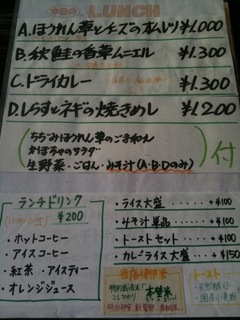 本日の LUNCH
A. ほうれん草とチーズのオムレツ ¥1,000
B. 秋鮭の香草ムニエル ¥1.300
C. ドライカレー ¥1.300
D. しらすとネギの焼きめし ¥1200
ちぢみほうれん草のごまあえ
かぼちゃのサラダ
生野菜・ごはん・みそ汁(A・B・Dのみ)
付
ランチドリンク
¥200
・ホットコーヒー
・アイスコーヒー
・紅茶・アイスティー
・オレンジジュース
・ライス大盛 ‥‥‥ +¥100
・みそ汁単品 ‥‥ ¥100
・トーストセット ‥ +¥100
・カレーライス大盛 ‥ +¥150
当店使用米
特別栽培
こしひかり
トースト
・天然酵母
・国産小麦